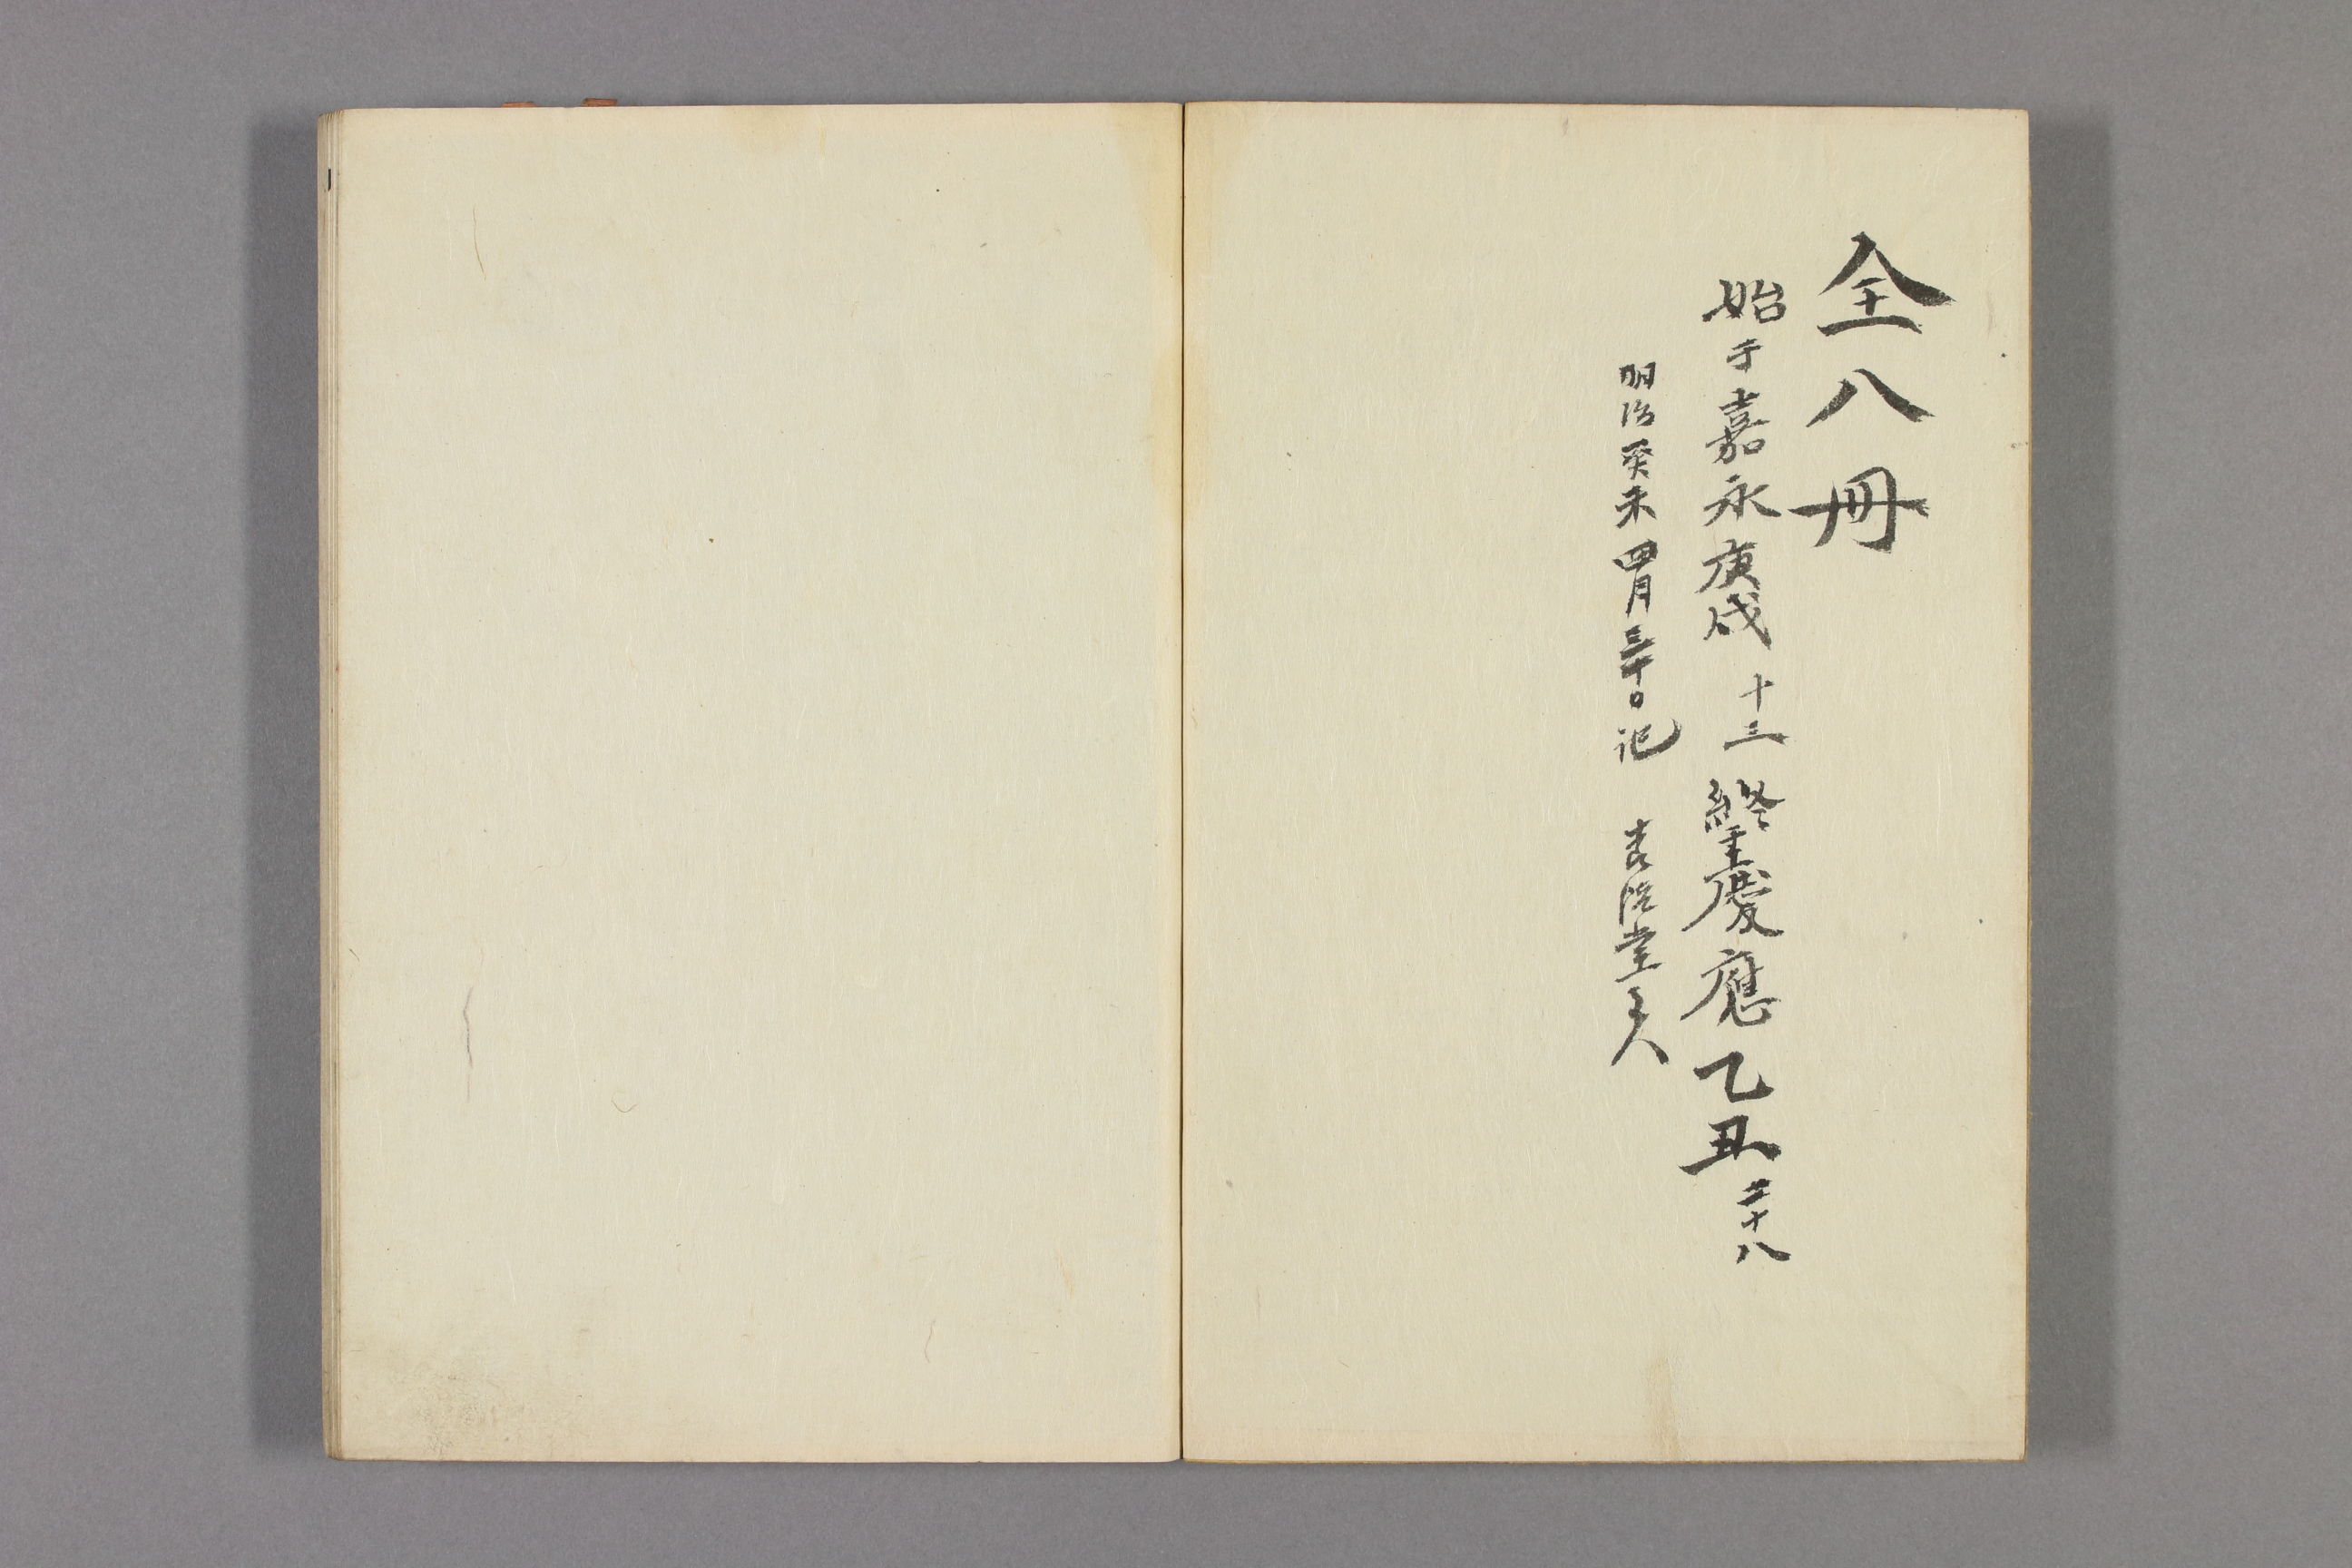 全八冊
始于嘉永庚戌 十三 終至慶應乙丑 二十八
明治癸未四月三十日記 堂主人